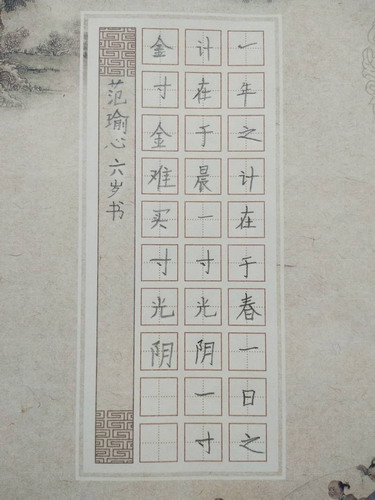 一年之计在于春一日之
计在于晨一寸光阴一寸
金寸金难买寸光阴
范瑜心六岁书